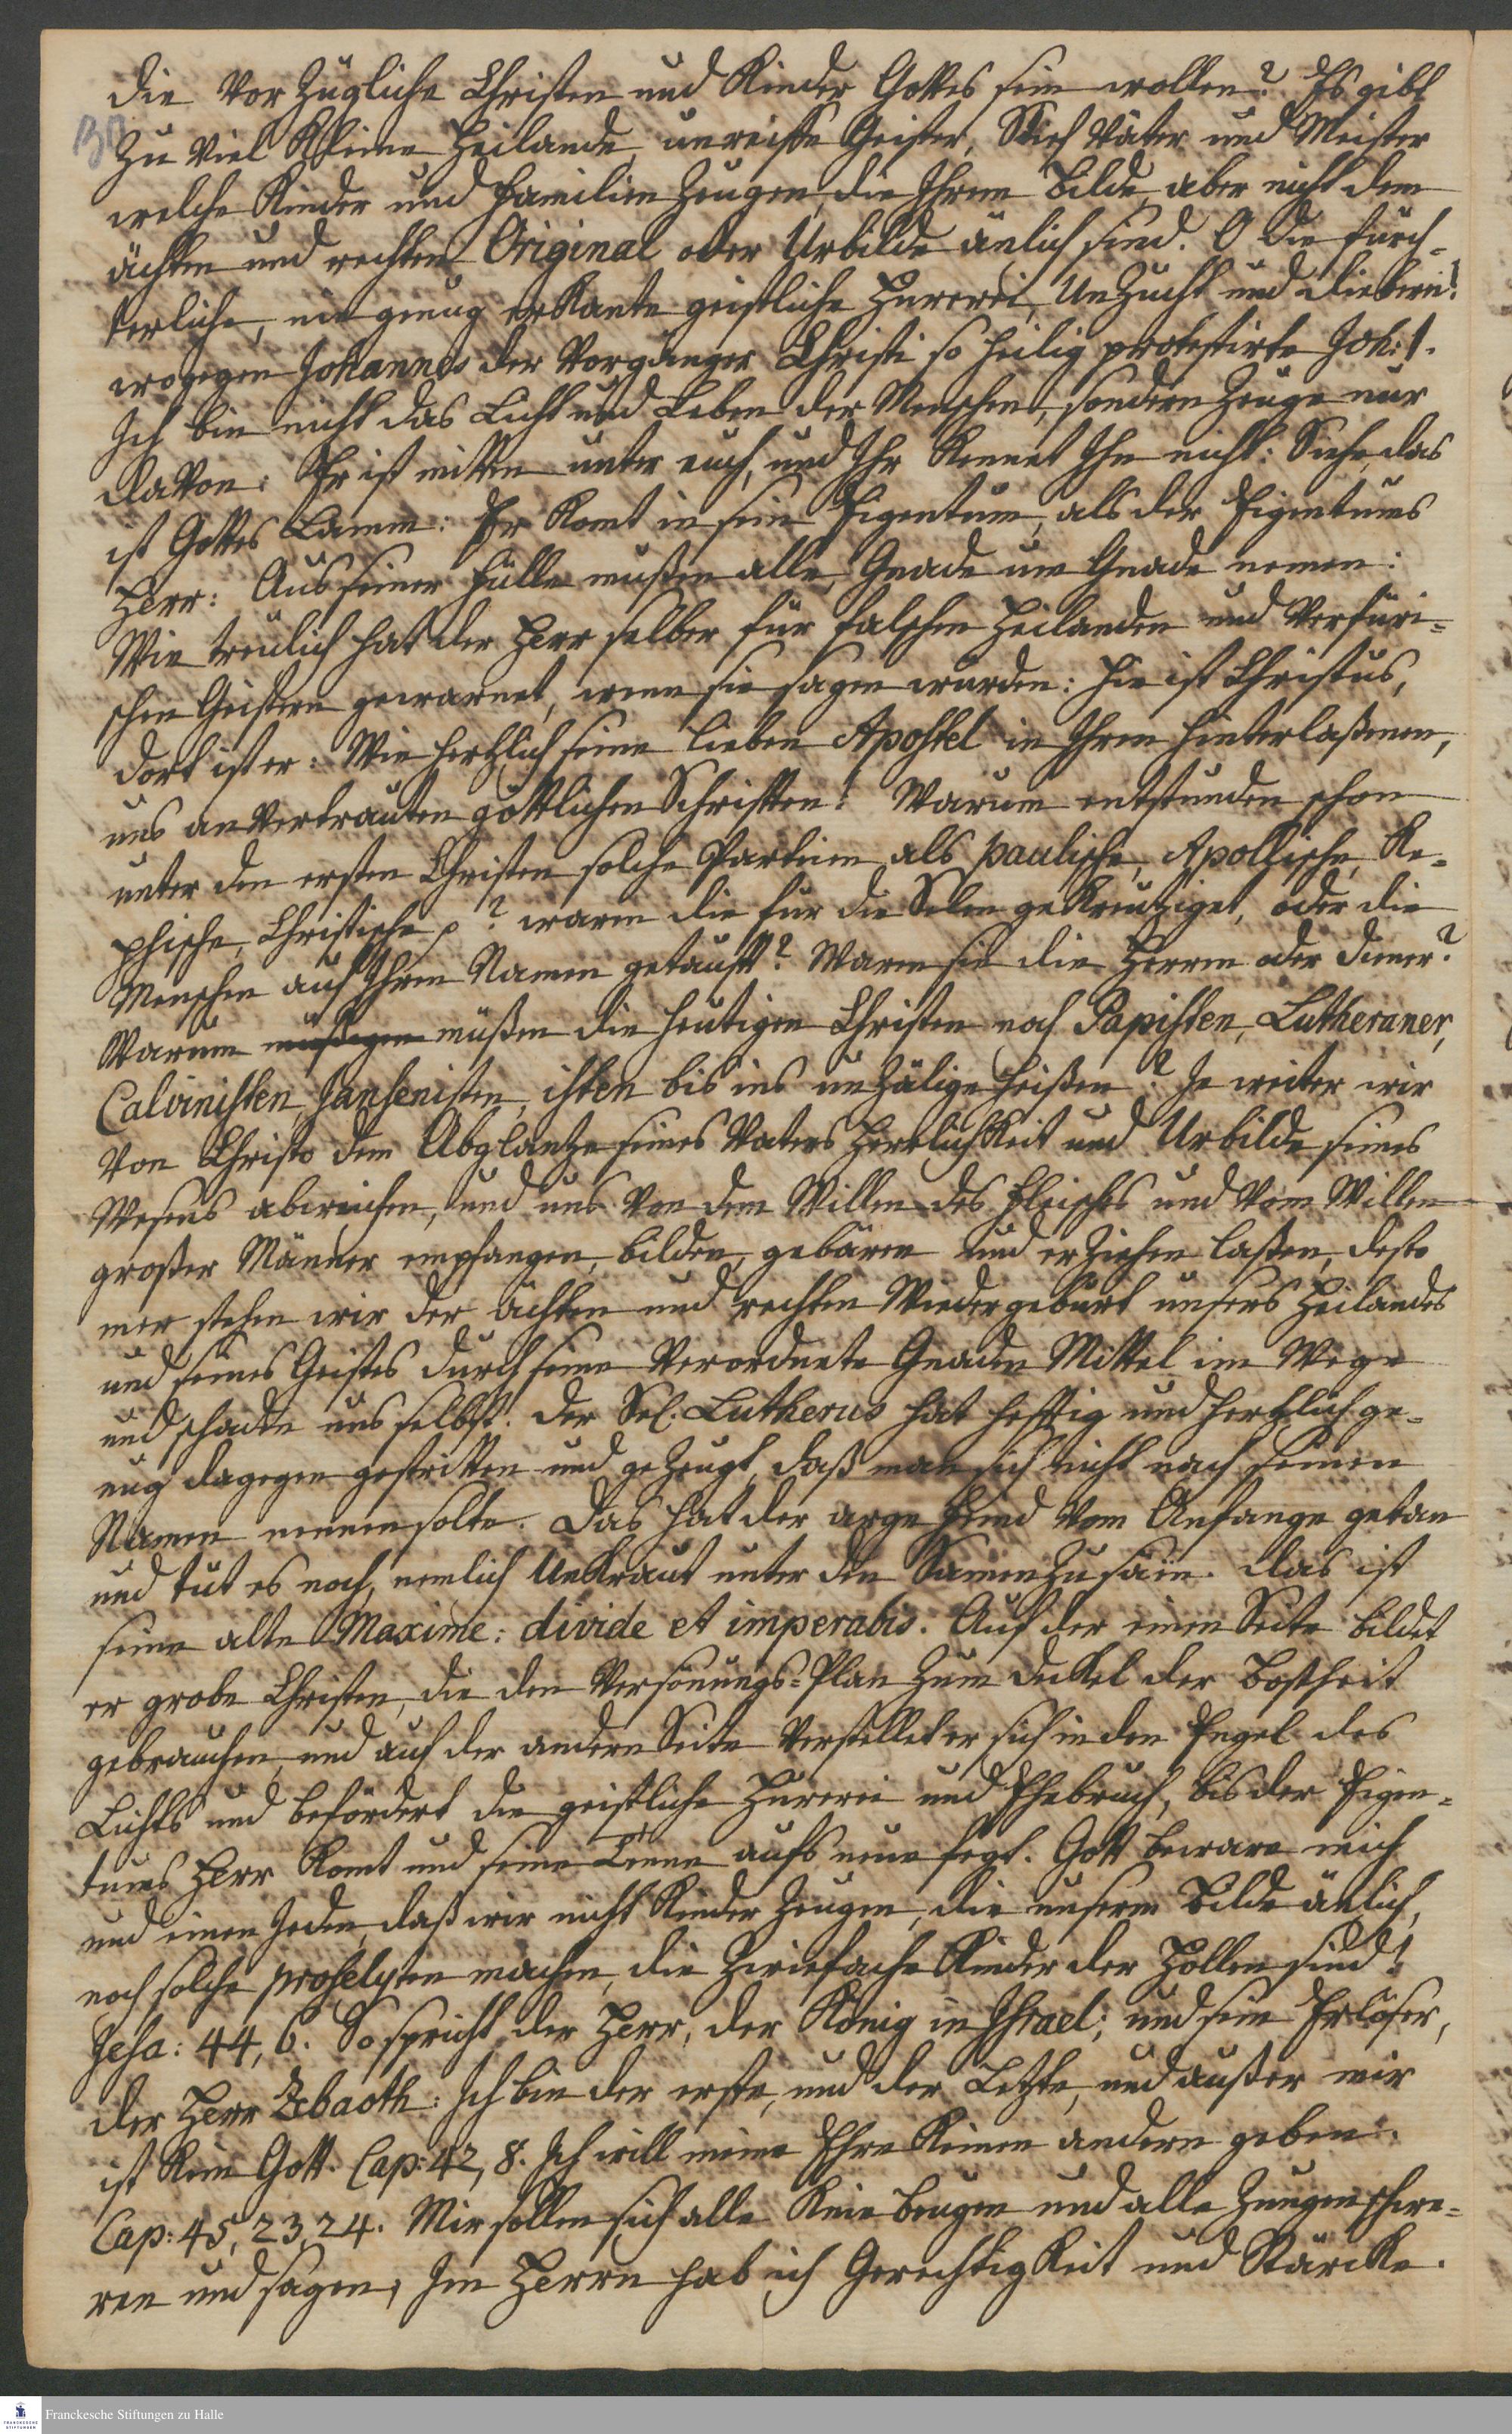 die vorzügliche Christen und Kinder Gottes sein wollen? Es gibt
zu viel kleine Heilande, unreiffe Geister, Stief Väter und Meister
welche Kinder und Familien zeugen, die Ihrem Bilde, aber nicht dem
ächten und rechten Original oder Urbilde änlich sind. O die fürch-
terliche, nie genug erkante geistliche Hurerei, Unzucht und Dieberei!
wogegen Johannes der Vorgänger Christi so heilig protestirte Joh: 1.
Ich bin nicht das Licht und Leben der Menschen, sondern Zeuge nur
davon: Er ist mitten unter euch, und Ihr kennet Ihn nicht: Siehe, das
ist Gottes Lamm: Er komt in sein Eigentum, als der Eigentums
Herr: Aus seiner Fülle müßen alle, Gnade um Gnade nemen:
Wie treulich hat der Herr selber für falschen Heilanden und verfüri-
schen Geistern gewarnet, wenn sie sagen würden: hie ist Christus,
dort ist er: Wie hertzlich seine lieben Apostel in Ihren hinterlaßenen,
uns anvertrauten göttlichen Schrifften! Warum entstunden schon
unter den ersten Christen solche Partien, als paulische, Apollische, Ke-
phische, Christische p? waren die für die Selen gekreutziget, oder die
Menschen auf Ihren Namen getaufft? Waren sie die Herren oder Diener?
Warum müßen die heutigen Christen noch Papisten, Lutheraner,
Calvinisten, Jansenisten, isten bis ins unzälige heißen? Je weiter wir
von Christo dem Abglantze seines Vaters Herrlichkeit und Urbilde seines
Wesens abweichen, und uns von dem Willen des Fleisches und vom Willen
großer Männer empfangen, bilden, gebären und erziehen laßen, desto
mer stehen wir der ächten und rechten Wiedergeburt unsers Heilandes
und seines Geistes durch seine verordnete Gnaden Mittel im Wege
und schaden uns selbst. Der Sel. Lutherus hat hefftig und hertzlich ge-
nug dagegen gestritten und gezeugt, daß man sich nicht nach seinen
Namen nennen solte. Das hat der arge Feind vom Anfange getan
und tut es noch, nemlich Unkraut unter den Samen zu säen. Das ist
seine alte Maxime: divide et imperabis. Auf der einen Seite bildet
er grobe Christen, die den Versönungs-Plan zum Deckel der Bosheit
gebrauchen, und auf der andern Seite verstellet er sich in den Engel des
Lichts und befördert die geistliche Hurerei und Ehebruch, bis der Eigen-
tums Herr komt und seine Tenne aufs neue fegt. Gott beware mich
und einen Jeden, daß wir nicht Kinder zeugen, die unserm Bilde änlich,
noch solche proselyten machen, die zwiefache Kinder der Höllen sind!
Jesa: 44, 6. So spricht der Herr, der König in Israel, und sein Erlöser,
der Herr Zebaoth: Ich bin der erste, und der Letzte, und außer mir
ist kein Gott. Cap: 42, 8. Ich will meine Ehre keinem andern geben.
Cap: 45, 23, 24. Mir sollen sich alle Knie beugen und alle Zungen schwe-
ren und sagen, Im Herrn hab ich Gerechtigkeit und Stärcke.
Franckesche Stiftungen zu Halle